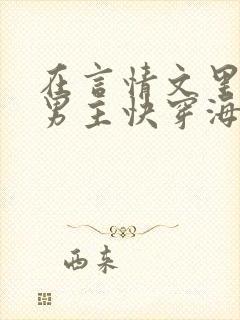 在言情文里
男主快穿海
西来